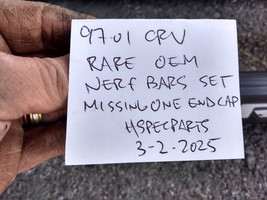 97-01 CRV
RARE OEM
NERF BARS SET
MISSING ONE ENDCAP
HSPECPARTS
3-2-2025